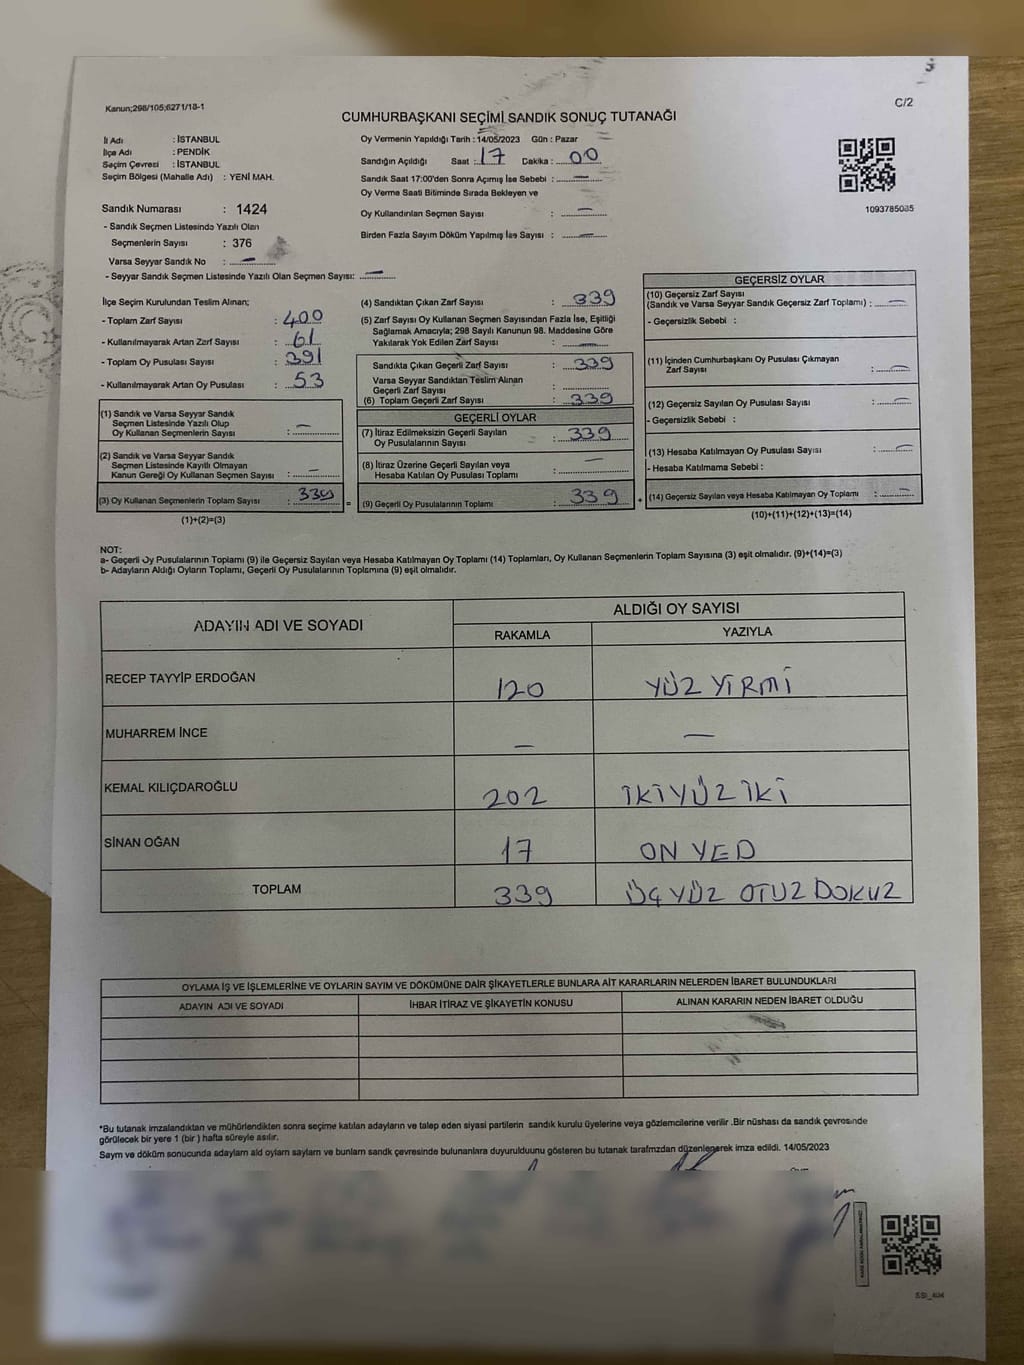 Kanun;298/105;6271/18-1
C/2
CUMHURBAŞKANI SEÇİMİ SANDIK SONUÇ TUTANAĞI
İl Adı : İSTANBUL
İlçe Adı : PENDİK
Seçim Çevresi : İSTANBUL
Seçim Bölgesi (Mahalle Adı) : YENİ MAH.
Oy Vermenin Yapıldığı Tarih : 14/05/2023 Gün : Pazar
Sandığın Açıldığı Saat : 17 Dakika : 00
Sandık Saat 17:00'den Sonra Açımış İse Sebebi : —
Oy Verme Saati Bitiminde Sırada Bekleyen ve
Oy Kullandırılan Seçmen Sayısı : —
Birden Fazla Sayım Döküm Yapılmış İse Sayısı : —
1093785085
Sandık Numarası : 1424
- Sandık Seçmen Listesinde Yazılı Olan
Seçmenlerin Sayısı : 376
Varsa Seyyar Sandık No : —
- Seyyar Sandık Seçmen Listesinde Yazılı Olan Seçmen Sayısı: —
İlçe Seçim Kurulundan Teslim Alınan;
- Toplam Zarf Sayısı : 400
- Kullanılmayarak Artan Zarf Sayısı : 61
- Toplam Oy Pusulası Sayısı : 391
- Kullanılmayarak Artan Oy Pusulası : 53
(1) Sandık ve Varsa Seyyar Sandık
Seçmen Listesinde Yazılı Olup
Oy Kullanan Seçmenlerin Sayısı : —
(2) Sandık ve Varsa Seyyar Sandık
Seçmen Listesinde Kayıtlı Olmayan
Kanun Gereği Oy Kullanan Seçmen Sayısı : —
(3) Oy Kullanan Seçmenlerin Toplam Sayısı : 339 =
(1)+(2)=(3)
(4) Sandıktan Çıkan Zarf Sayısı : 339
(5) Zarf Sayısı Oy Kullanan Seçmen Sayısından Fazla İse, Eşitliği
Sağlamak Amacıyla; 298 Sayılı Kanunun 98. Maddesine Göre
Yakılarak Yok Edilen Zarf Sayısı : —
Sandıkta Çıkan Geçerli Zarf Sayısı : 339
Varsa Seyyar Sandıktan Teslim Alınan
Geçerli Zarf Sayısı :
(6) Toplam Geçerli Zarf Sayısı : 339
GEÇERLİ OYLAR
(7) İtiraz Edilmeksizin Geçerli Sayılan
Oy Pusulalarının Sayısı : 339
(8) İtiraz Üzerine Geçerli Sayılan veya
Hesaba Katılan Oy Pusulası Toplamı : —
(9) Geçerli Oy Pusulalarının Toplamı : 339 +
GEÇERSİZ OYLAR
(10) Geçersiz Zarf Sayısı
(Sandık ve Varsa Seyyar Sandık Geçersiz Zarf Toplamı) : —
- Geçersizlik Sebebi :
(11) İçinden Cumhurbaşkanı Oy Pusulası Çıkmayan
Zarf Sayısı : —
(12) Geçersiz Sayılan Oy Pusulası Sayısı : —
- Geçersizlik Sebebi :
(13) Hesaba Katılmayan Oy Pusulası Sayısı : —
- Hesaba Katılmama Sebebi :
(14) Geçersiz Sayılan veya Hesaba Katılmayan Oy Toplamı : —
(10)+(11)+(12)+(13)=(14)
NOT:
a- Geçerli Oy Pusulalarının Toplamı (9) ile Geçersiz Sayılan veya Hesaba Katılmayan Oy Toplamı (14) Toplamları, Oy Kullanan Seçmenlerin Toplam Sayısına (3) eşit olmalıdır. (9)+(14)=(3)
b- Adayların Aldığı Oyların Toplamı, Geçerli Oy Pusulalarının Toplamına (9) eşit olmalıdır.
ADAYIN ADI VE SOYADI
ALDIĞI OY SAYISI
RAKAMLA YAZIYLA
RECEP TAYYİP ERDOĞAN 120 YÜZ YİRMİ
MUHARREM İNCE — —
KEMAL KILIÇDAROĞLU 202 İKİYÜZ İKİ
SİNAN OĞAN 17 ON YED
TOPLAM 339 ÜÇ YÜZ OTUZ DOKUZ
OYLAMA İŞ VE İŞLEMLERİNE VE OYLARIN SAYIM VE DÖKÜMÜNE DAİR ŞİKAYETLERLE BUNLARA AİT KARARLARIN NELERDEN İBARET BULUNDUKLARI
ADAYIN ADI VE SOYADI İHBAR İTİRAZ VE ŞİKAYETİN KONUSU ALINAN KARARIN NEDEN İBARET OLDUĞU
*Bu tutanak imzalandıktan ve mühürlendikten sonra seçime katılan adayların ve talep eden siyasi partilerin sandık kurulu üyelerine veya gözlemcilerine verilir .Bir nüshası da sandık çevresinde
görülecek bir yere 1 (bir ) hafta süreyle asılır.
Sayım ve döküm sonucunda adayların aldı oyların sayıları ve bunların sandk çevresinde bulunanlara duyurulduunu gösteren bu tutanak tarafmzdan düzenlenerek imza edildi. 14/05/2023